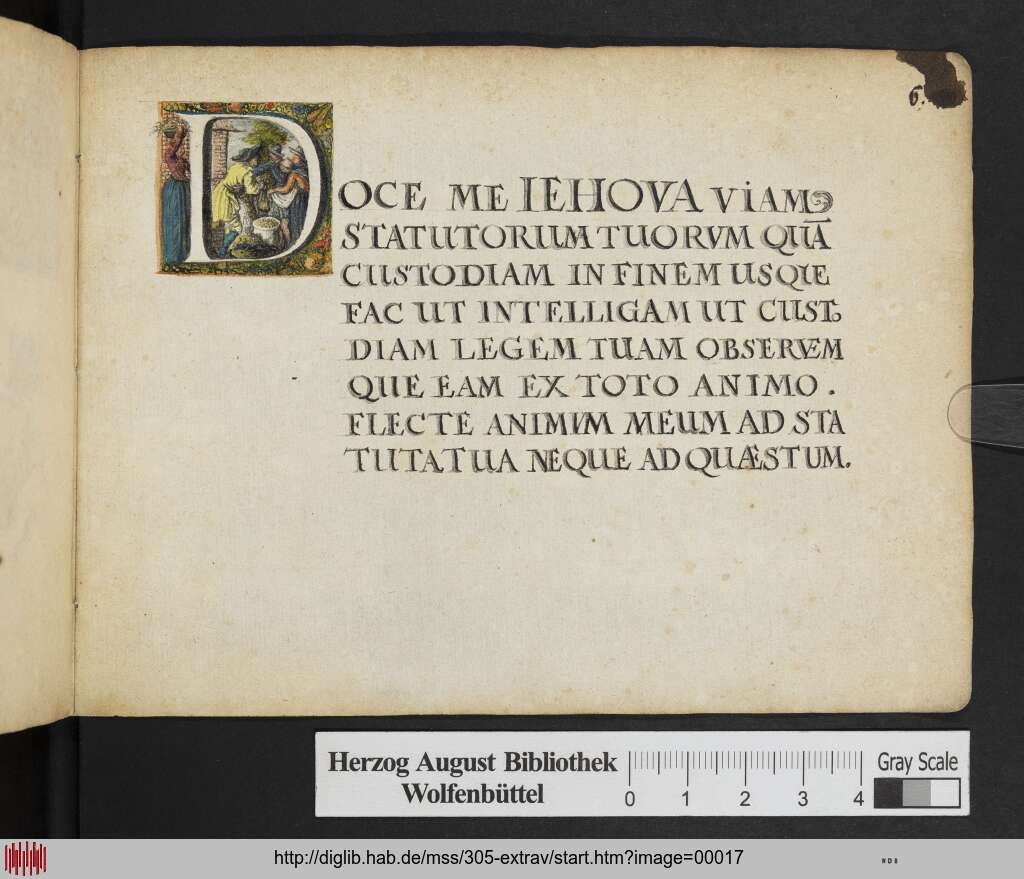 6.
DOCE ME IEHOVA ViAM
STATUTORIUM TUORVM QUĀ
CUSTODIAM IN FINEM USQUE
FAC UT INTELLIGAM UT CUSTO
DIAM LEGEM TUAM OBSERVEM
QUE EAM EX TOTO ANIMO .
FLECTE ANIMUM MEUM AD STA
TUTA TUA NEQUE AD QUÆSTUM.
Herzog August Bibliothek
Wolfenbüttel
0 1 2 3 4
Gray Scale
http://diglib.hab.de/mss/305-extrav/start.htm?image=00017